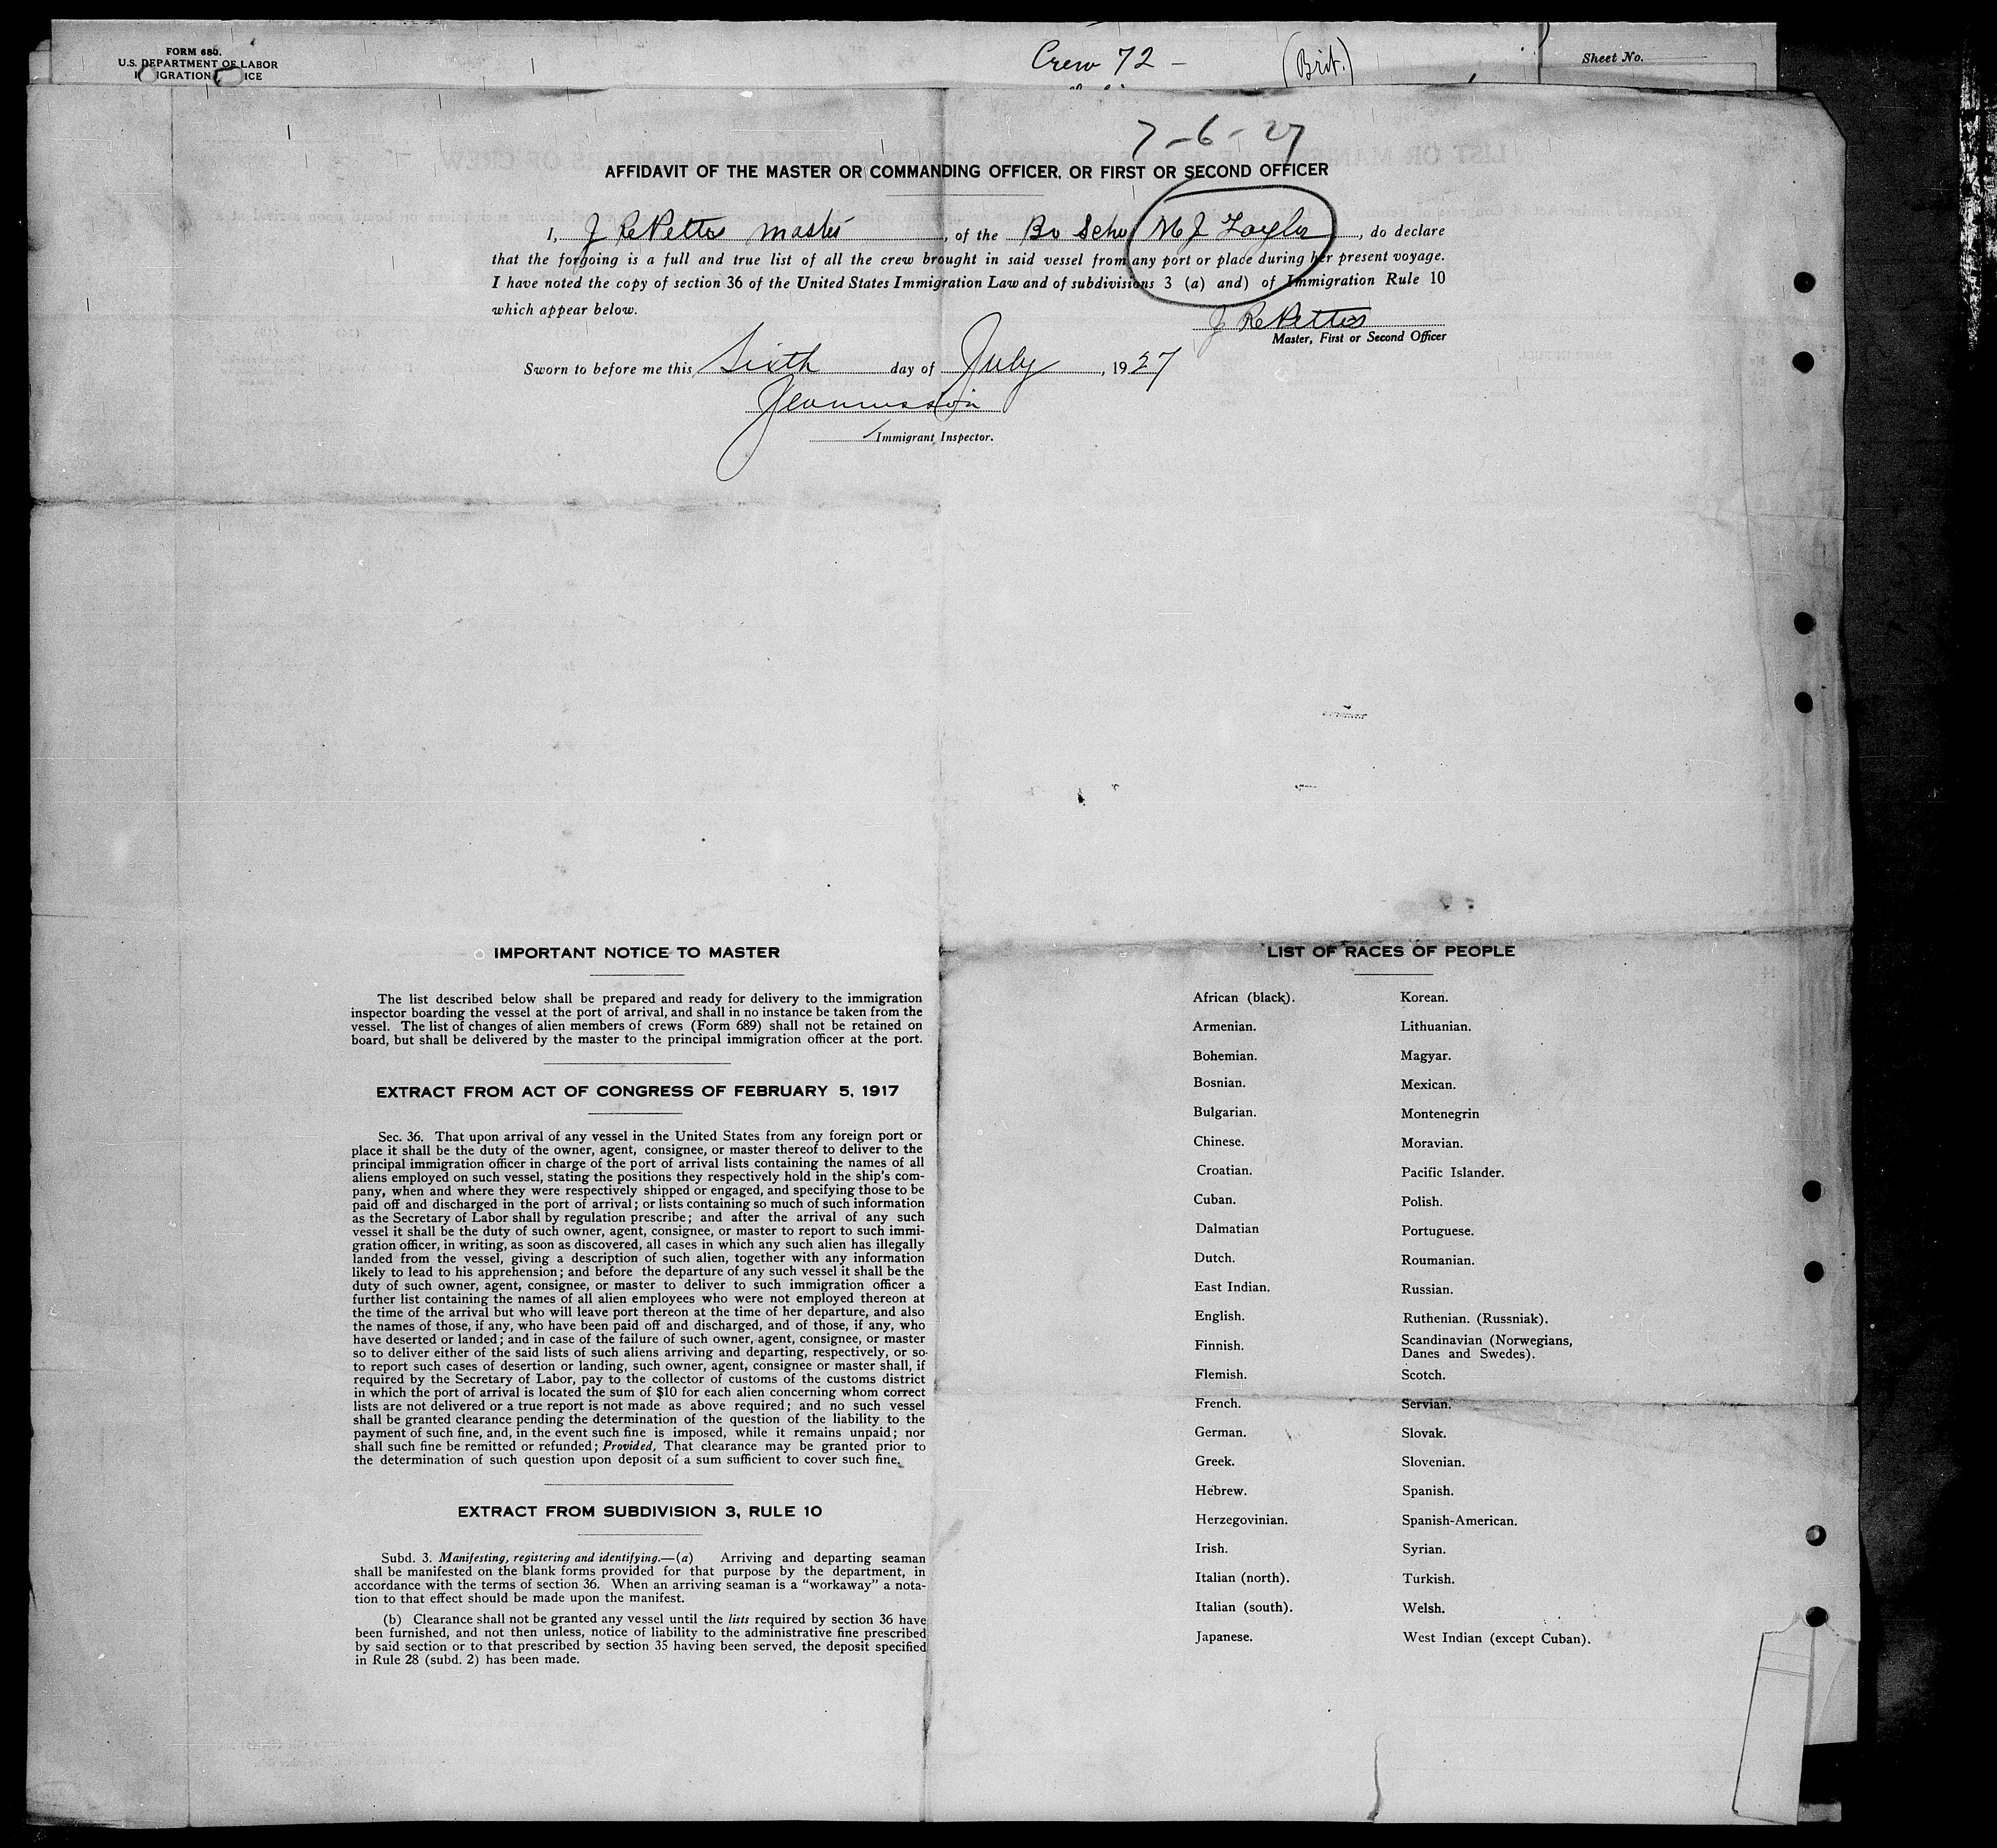 FORM 680.
U.S. DEPARTMENT OF LABOR
Crew 72 -
(Brit.)
Sheet No.
7-6-27
AFFIDAVIT OF THE MASTER OR COMMANDING OFFICER, OR FIRST OR SECOND OFFICER
I, J master, of the M J , do declare
that the forgoing is a full and true list of all the crew brought in said vessel from any port or place during her present voyage.
I have noted the copy of section 36 of the United States Immigration Law and of subdivisions 3 (a) and) of Immigration Rule 10
which appear below.
J
Master, First or Second Officer
Sworn to before me this Sixth day of July, 1927
Immigrant Inspector.
IMPORTANT NOTICE TO MASTER
The list described below shall be prepared and ready for delivery to the immigration
inspector boarding the vessel at the port of arrival, and shall in no instance be taken from the
vessel. The list of changes of alien members of crews (Form 689) shall not be retained on
board, but shall be delivered by the master to the principal immigration officer at the port.
EXTRACT FROM ACT OF CONGRESS OF FEBRUARY 5, 1917
Sec. 36. That upon arrival of any vessel in the United States from any foreign port or
place it shall be the duty of the owner, agent, consignee, or master thereof to deliver to the
principal immigration officer in charge of the port of arrival lists containing the names of all
aliens employed on such vessel, stating the positions they respectively hold in the ship's com-
pany, when and where they were respectively shipped or engaged, and specifying those to be
paid off and discharged in the port of arrival; or lists containing so much of such information
as the Secretary of Labor shall by regulation prescribe; and after the arrival of any such
vessel it shall be the duty of such owner, agent, consignee, or master to report to such immi-
gration officer, in writing, as soon as discovered, all cases in which any such alien has illegally
landed from the vessel, giving a description of such alien, together with any information
likely to lead to his apprehension; and before the departure of any such vessel it shall be the
duty of such owner, agent, consignee, or master to deliver to such immigration officer a
further list containing the names of all alien employees who were not employed thereon at
the time of the arrival but who will leave port thereon at the time of her departure, and also
the names of those, if any, who have been paid off and discharged, and of those, if any, who
have deserted or landed; and in case of the failure of such owner, agent, consignee, or master
so to deliver either of the said lists of such aliens arriving and departing, respectively, or so
to report such cases of desertion or landing, such owner, agent, consignee or master shall, if
required by the Secretary of Labor, pay to the collector of customs of the customs district
in which the port of arrival is located the sum of $10 for each alien concerning whom correct
lists are not delivered or a true report is not made as above required; and no such vessel
shall be granted clearance pending the determination of the question of the liability to the
payment of such fine, and, in the event such fine is imposed, while it remains unpaid; nor
shall such fine be remitted or refunded; Provided, That clearance may be granted prior to
the determination of such question upon deposit of a sum sufficient to cover such fine.
EXTRACT FROM SUBDIVISION 3, RULE 10
Subd. 3. Manifesting, registering and identifying.—(a) Arriving and departing seaman
shall be manifested on the blank forms provided for that purpose by the department, in
accordance with the terms of section 36. When an arriving seaman is a "workaway" a nota-
tion to that effect should be made upon the manifest.
(b) Clearance shall not be granted any vessel until the lists required by section 36 have
been furnished, and not then unless, notice of liability to the administrative fine prescribed
by said section or to that prescribed by section 35 having been served, the deposit specified
in Rule 28 (subd. 2) has been made.
LIST OF RACES OF PEOPLE
African (black). Korean.
Armenian. Lithuanian.
Bohemian. Magyar.
Bosnian. Mexican.
Bulgarian. Montenegrin
Chinese. Moravian.
Croatian. Pacific Islander.
Cuban. Polish.
Dalmatian Portuguese.
Dutch. Roumanian.
East Indian. Russian.
English. Ruthenian. (Russniak).
Finnish. Scandinavian (Norwegians,
Danes and Swedes).
Flemish. Scotch.
French. Servian.
German. Slovak.
Greek. Slovenian.
Hebrew. Spanish.
Herzegovinian. Spanish-American.
Irish. Syrian.
Italian (north). Turkish.
Italian (south). Welsh.
Japanese. West Indian (except Cuban).